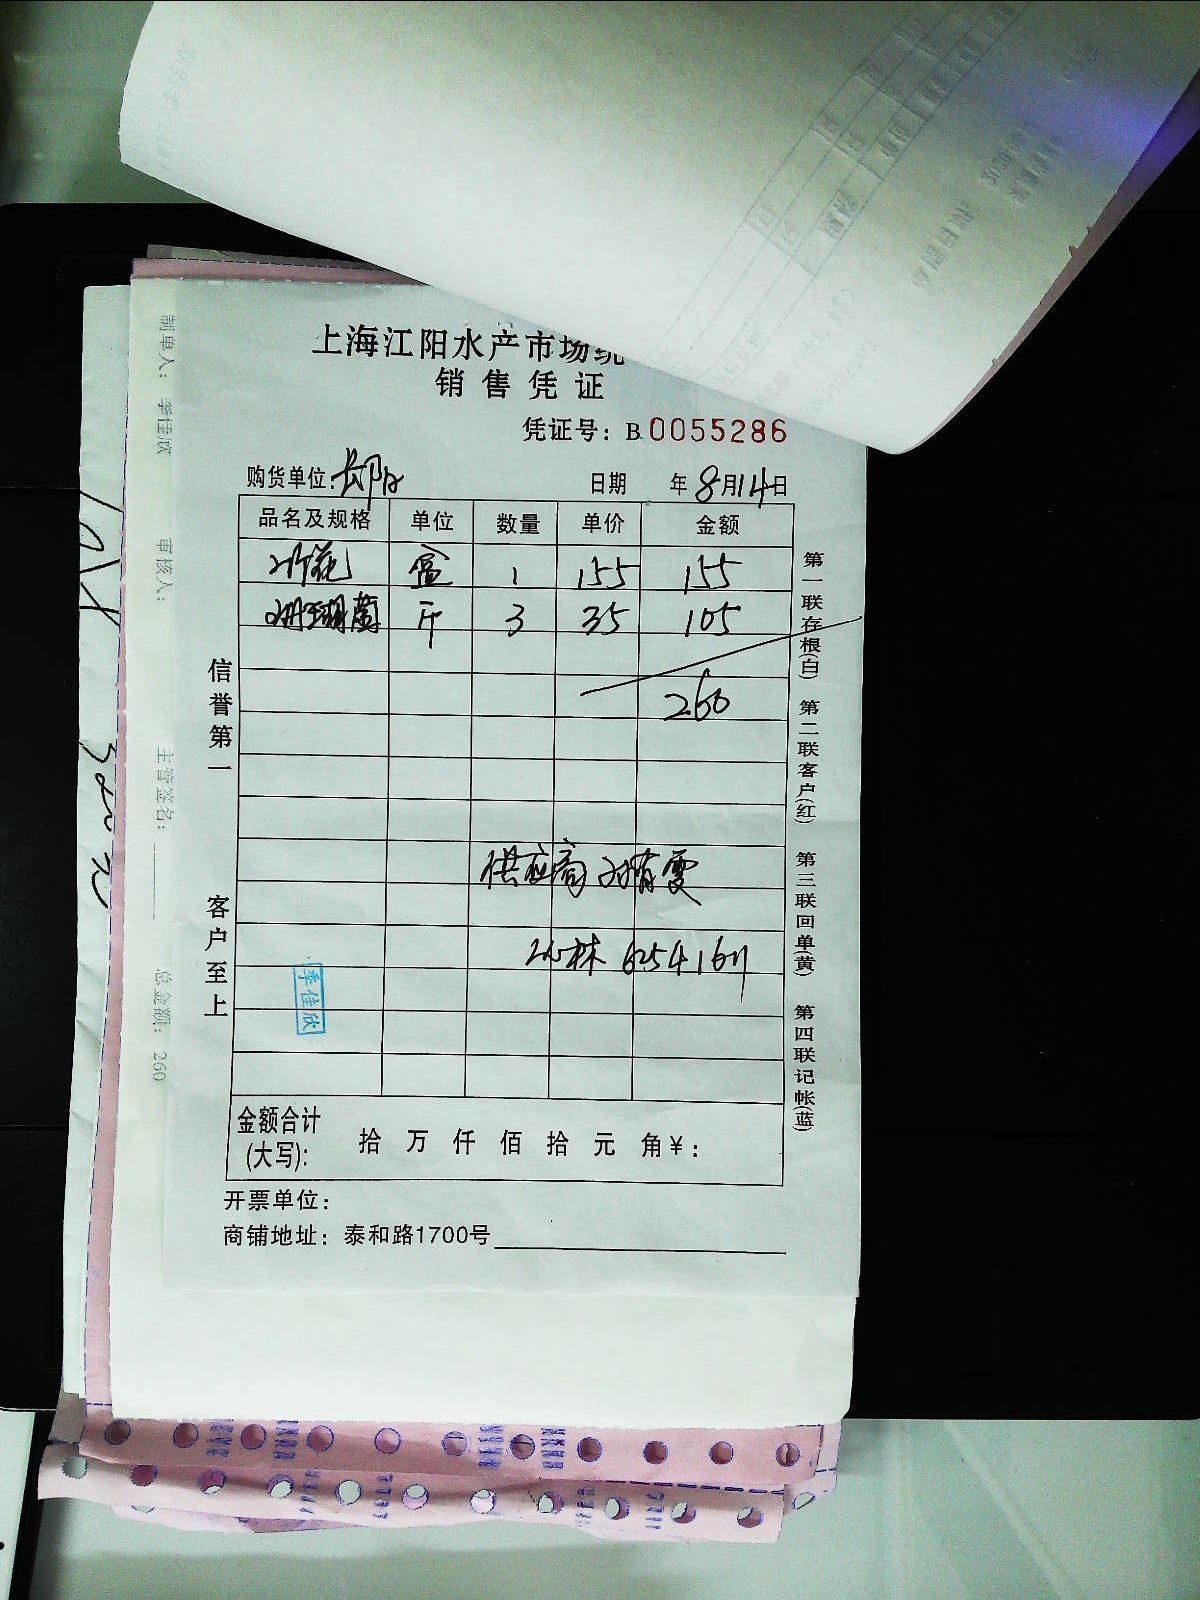 上海江阳水产市场统
销售凭证
凭证号：B 0055286
购货单位： 日期 年8月14日
品名及规格 单位 数量 单价 金额
盒 1 155 155
珊瑚菌 斤 3 35 105
260
供应商
李佳欣
金额合计
(大写)： 拾 万 仟 佰 拾 元 角￥：
开票单位：
商铺地址：泰和路1700号
信誉第一
客户至上
第一联存根(白) 第二联客户(红) 第三联回单(黄) 第四联记帐(蓝)
制单人： 李佳欣 审核人： 主管签名： 总金额： 260